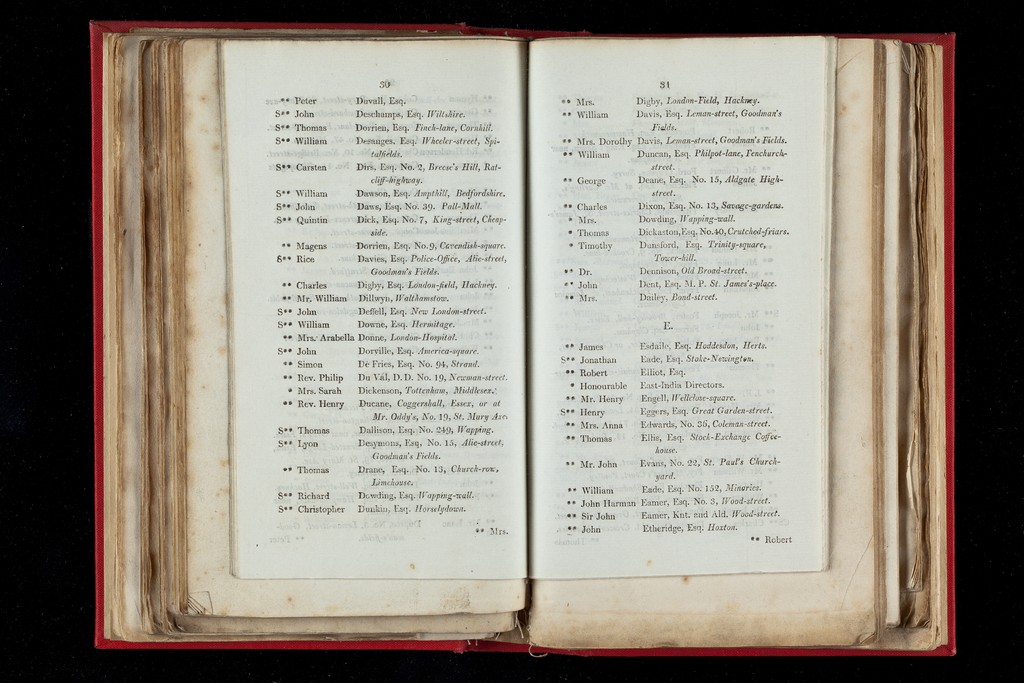 30
** Peter Duvall, Esq.
S** John Deschamps, Esq. Wiltshire.
S** Thomas Dorrien, Esq. Finch-lane, Cornhill.
S** William Desanges, Esq. Wheeler-street, Spi-
talfields.
S** Carsten Dirs, Esq. No. 2, Breese's Hill, Rat-
cliff-highway.
S** William Dawson, Esq. Ampthill, Bedfordshire.
S** John Daws, Esq. No. 39. Pall-Mall.
S** Quintin Dick, Esq. No. 7, King-street, Cheap-
side.
** Magens Dorrien, Esq. No. 9, Cavendish-square.
S** Rice Davies, Esq. Police-Office, Alie-street,
Goodman's Fields.
** Charles Digby, Esq. London-field, Hackney.
** Mr. William Dillwyn, Walthamstow.
S** John Deffell, Esq. New London-street.
S** William Downe, Esq. Hermitage.
** Mrs. Arabella Donne, London-Hospital.
S** John Dorville, Esq. America-square.
** Simon De Fries, Esq. No. 94, Strand.
** Rev. Philip Du Val, D.D. No. 19, Newman-street.
* Mrs. Sarah Dickenson, Tottenham, Middlesex.
** Rev. Henry Ducane, Coggershall, Essex, or at
Mr. Oddy's, No. 19, St. Mary Axe.
S** Thomas Dallison, Esq. No. 249, Wapping.
S** Lyon Desymons, Esq. No. 15, Alie-street,
Goodman's Fields.
** Thomas Drane, Esq. No. 13, Church-row,
Limehouse.
S** Richard Dowding, Esq. Wapping-wall.
S** Christopher Dunkin, Esq. Horselydown.
** Mrs.
31
** Mrs. Digby, London-Field, Hackney.
** William Davis, Esq. Leman-street, Goodman's
Fields.
** Mrs. Dorothy Davis, Leman-street, Goodman's Fields.
** William Duncan, Esq. Philpot-lane, Fenchurch-
street.
** George Deane, Esq. No. 15, Aldgate High-
street.
** Charles Dixon, Esq. No. 13, Savage-gardens.
* Mrs. Dowding, Wapping-wall.
* Thomas Dickaston, Esq. No. 40, Crutched-friars.
* Timothy Dunsford, Esq. Trinity-square,
Tower-hill.
** Dr. Dennison, Old Broad-street.
** John Dent, Esq. M. P. St. James's-place.
** Mrs. Dailey, Bond-street.
E.
** James Esdaile, Esq. Hoddesdon, Herts.
S** Jonathan Eade, Esq. Stoke-Newington.
** Robert Elliot, Esq.
* Honourable East-India Directors.
** Mr. Henry Engell, Wellclose-square.
S** Henry Eggers, Esq. Great Garden-street.
** Mrs. Anna Edwards, No. 36, Coleman-street.
** Thomas Ellis, Esq. Stock-Exchange Coffee-
house.
** Mr. John Evans, No. 22, St. Paul's Church-
yard.
** William Eade, Esq. No. 152, Minories.
** John Harman Eamer, Esq. No. 3, Wood-street.
** Sir John Eamer, Knt. and Ald. Wood-street.
** John Etheridge, Esq. Hoxton.
** Robert